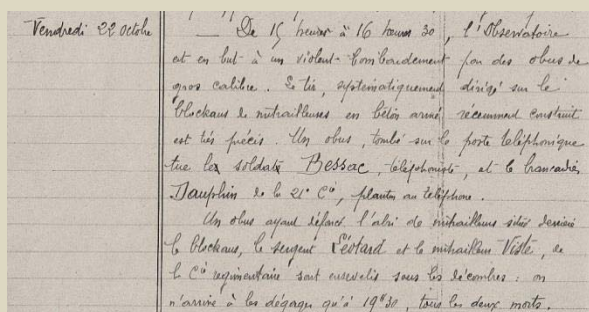 Vendredi 22 octobre
De 15 heures à 16 heures 30, l'Observatoire
est en but à un violent bombardement par des obus de
gros calibre. Le tir, systématiquement dirigé sur le
blockaus de mitrailleuses en béton armé, récemment construit
est très précis. Un obus, tombé sur le poste téléphonique
tue les soldats Bessac, téléphoniste, et le brancardier
Dauphin de la 21e Cie, planton au téléphone.
Un obus ayant défoncé l'abri de mitrailleurs situé derrière
le blockaus, le sergent Léotard et le mitrailleur Viste, de
la Cie regimentaire sont ensevelis sous les décombres : on
n'arrive à les dégager qu'à 19h30, tous les deux morts.